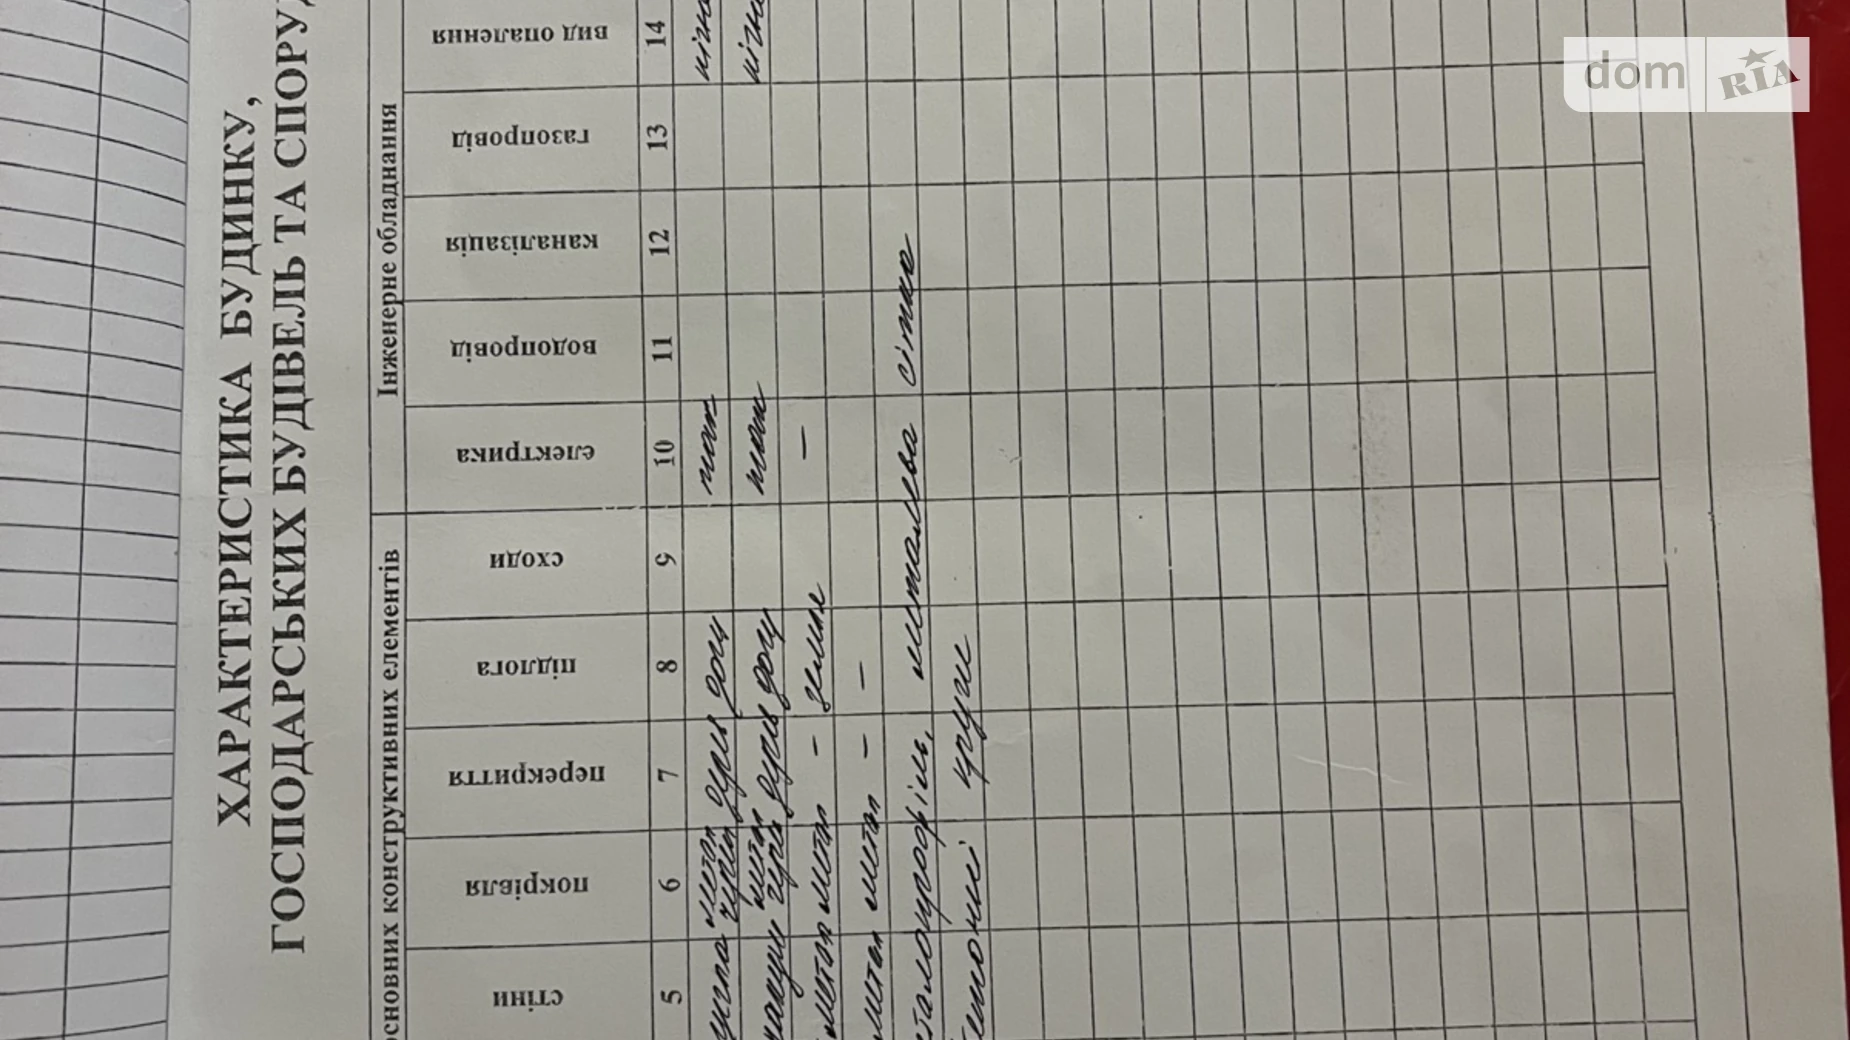 ХАРАКТЕРИСТИКА БУДИНКУ,
ГОСПОДАРСЬКИХ БУДІВЕЛЬ ТА СПОРУД
основних конструктивних елементів
Інженерне обладнання
стіни
покрівля
перекриття
підлога
сходи
електрика
водопровід
каналізація
газопровід
вид опалення
5 6 7 8 9 10 11 12 13 14
метал
череп дерев дощ
метал
череп дерев дощ
метал метал - земля -
метал метал - -
металопрофіль, металева сітка
бетонні
dom RIA